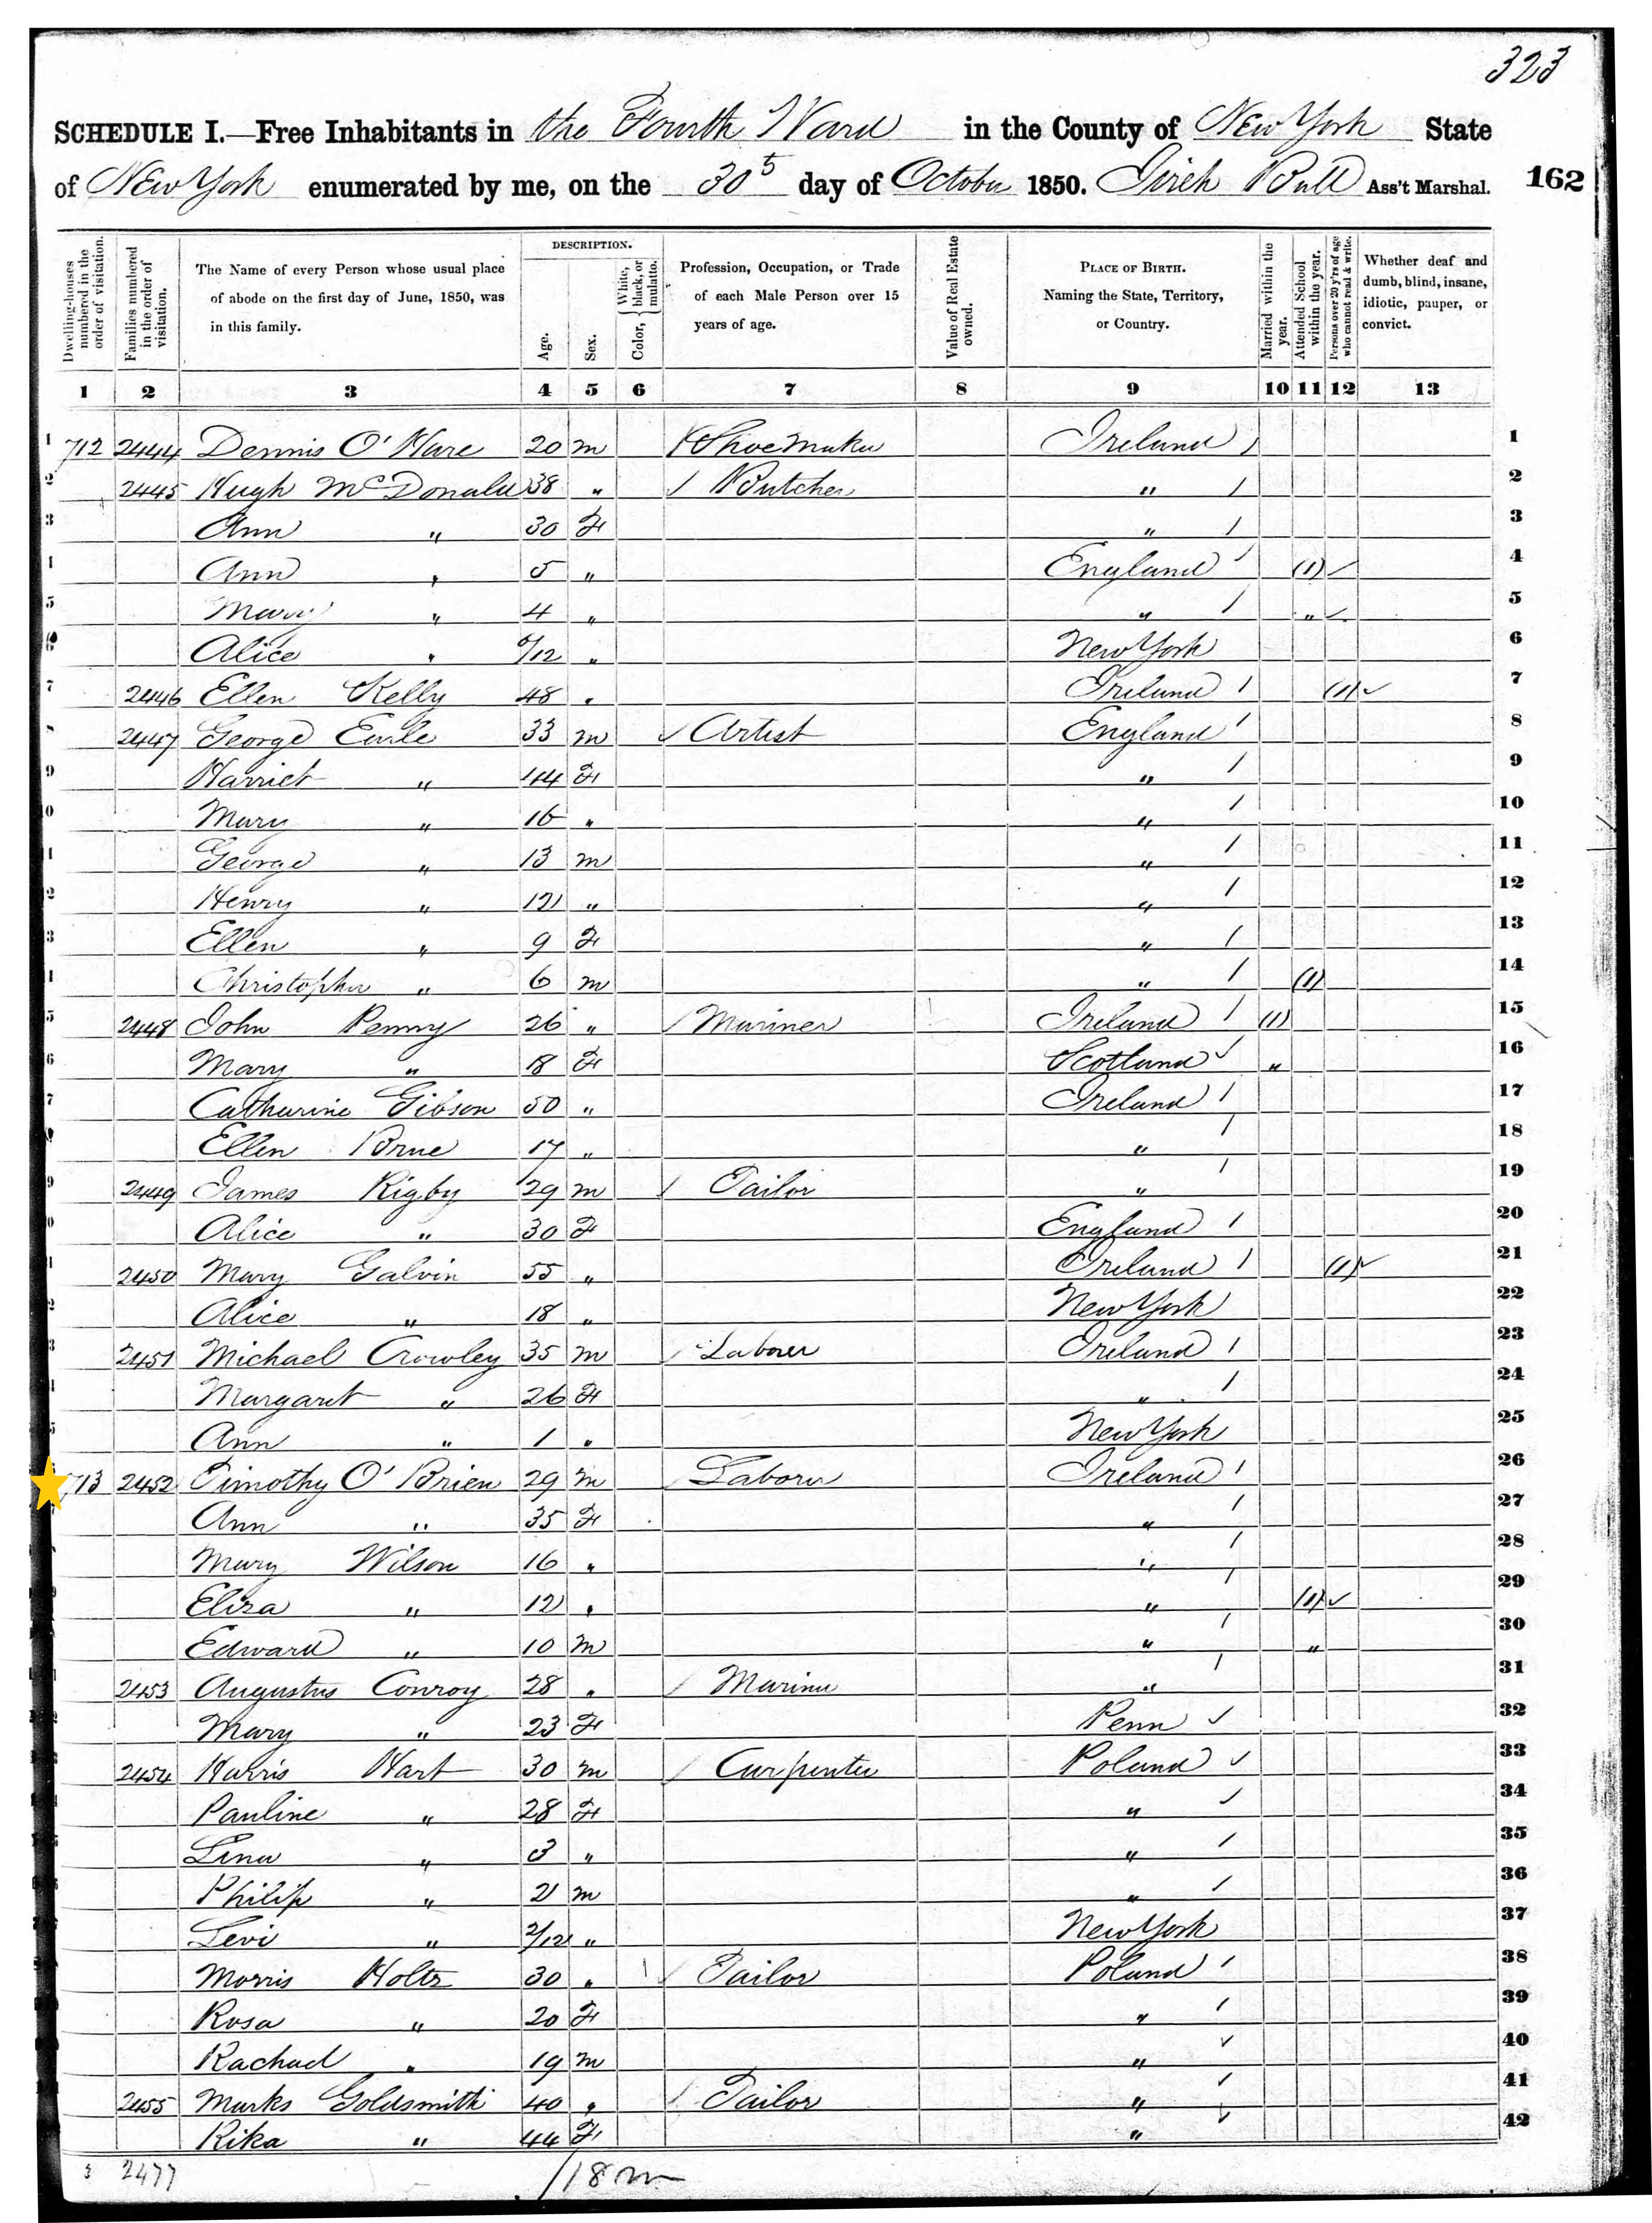 323
SCHEDULE I.—Free Inhabitants in the Fourth Ward in the County of New York State
of New York enumerated by me, on the 30 day of October 1850. Jireh Bull Ass't Marshal. 162
Dwelling-houses numbered in the order of visitation.
Families numbered in the order of visitation.
The Name of every Person whose usual place of abode on the first day of June, 1850, was in this family.
DESCRIPTION.
Age.
Sex.
Color, { White, black, or mulatto.
Profession, Occupation, or Trade of each Male Person over 15 years of age.
Value of Real Estate owned.
PLACE OF BIRTH. Naming the State, Territory, or Country.
Married within the year.
Attended School within the year.
Persons over 20 y'rs of age who cannot read & write.
Whether deaf and dumb, blind, insane, idiotic, pauper, or convict.
1 2 3 4 5 6 7 8 9 10 11 12 13
1 712 2444 Dennis O'Hare 20 m Shoemaker Ireland 1
2 2445 Hugh McDonald 38 " Butcher " 2
3 Ann " 30 F " 3
Ann " 5 " England (1) 4
5 Mary " 4 " " " 5
6 Alice " 6/12 " New York 6
7 2446 Ellen Kelly 48 " Ireland (1) 7
2447 George Earle 33 m Artist England 8
9 Harriet " 44 F " 9
0 Mary " 16 " " 10
1 George " 13 m " 11
2 Henry " 12 " " 12
3 Ellen " 9 F " 13
Christopher " 6 m " (1) 14
5 2448 John Penny 26 " Mariner Ireland (1) 15
6 Mary " 18 F Scotland " 16
7 Catharine Gibson 50 " Ireland 17
Ellen 17 " " 18
9 2449 James Rigby 29 m Tailor " 19
0 Alice " 30 F England 20
1 2450 Mary Galvin 55 " Ireland (1) 21
2 Alice " 18 " New York 22
3 2451 Michael Crowley 35 m Laborer Ireland 23
Margaret " 26 F " 24
5 Ann " 1 " New York 25
713 2452 Timothy O'Brien 29 m Laborer Ireland 26
Ann " 35 F " 27
Mary Wilson 16 " " 28
Eliza " 12 " " (1) 29
Edward " 10 m " " 30
2453 Augustus Conroy 28 " Mariner " 31
Mary " 23 F Penn 32
2454 Harris Hart 30 m Carpenter Poland 33
Pauline " 28 F " 34
Lina " 3 " " 35
Philip " 2 m " 36
Levi " 2/12 " New York 37
Morris Holtz 30 " Tailor Poland 38
Rosa " 20 F " 39
Rachael " 19 m " 40
2455 Marks Goldsmith 40 " Tailor " 41
Rika " 44 F " 42
2477 18 m